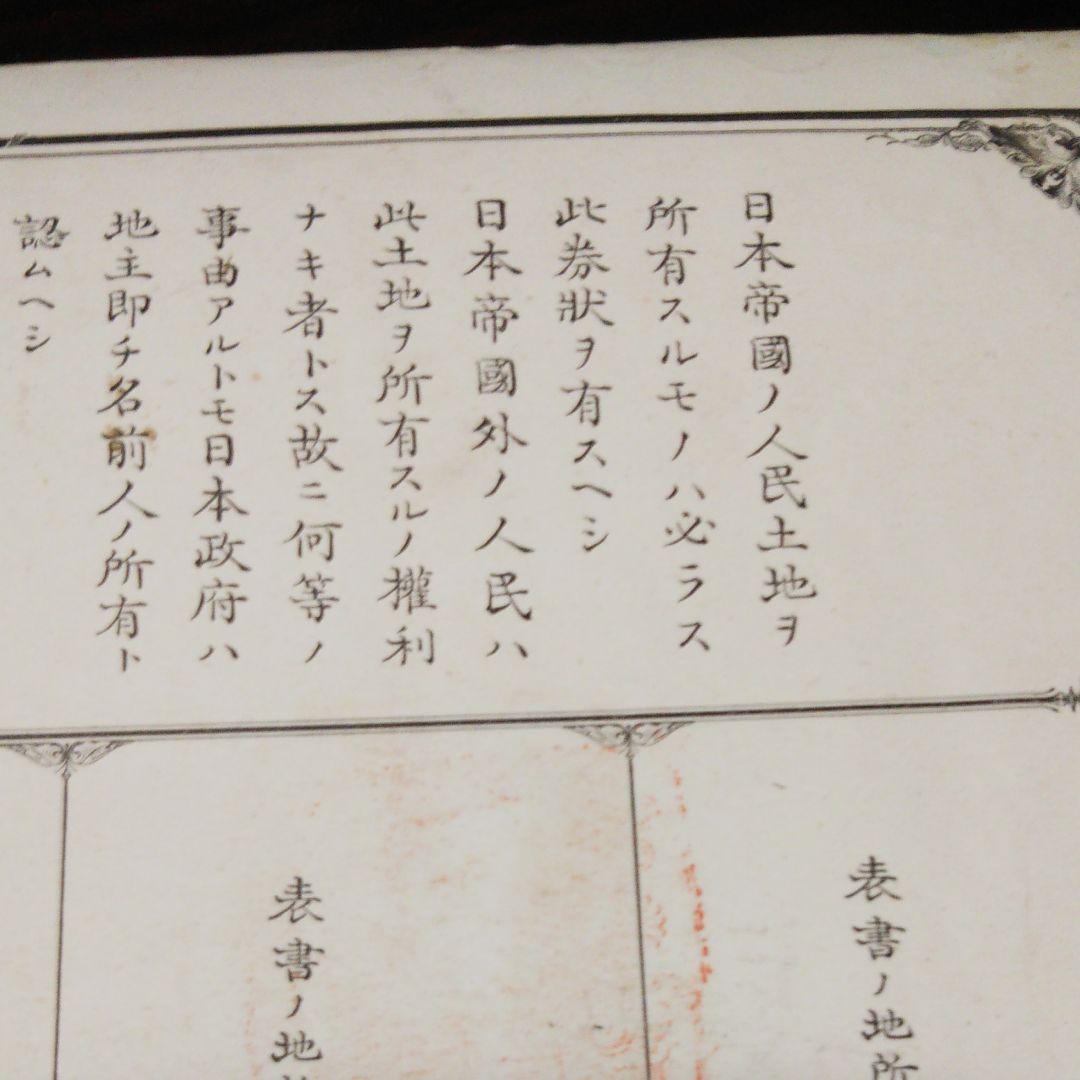 日本帝國ノ人民土地ヲ
所有スルモノハ必ラス
此券狀ヲ有スヘシ
日本帝國外ノ人民ハ
此土地ヲ所有スルノ權利
ナキ者トス故ニ何等ノ
事由アルトモ日本政府ハ
地主即チ名前人ノ所有ト
認ムヘシ
表書ノ地所
表書ノ地